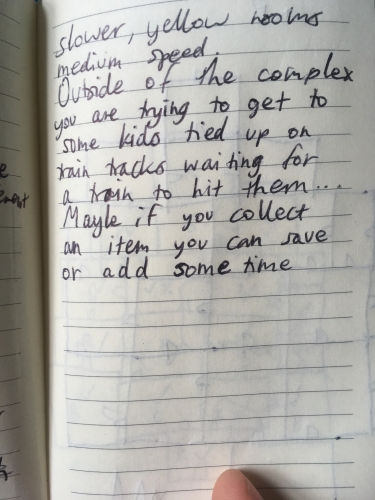 slower, yellow rooms
medium speed.
Outside of the complex
you are trying to get to
some kids tied up on
train tracks waiting for
a train to hit them...
Maybe if you collect
an item you can save
or add some time